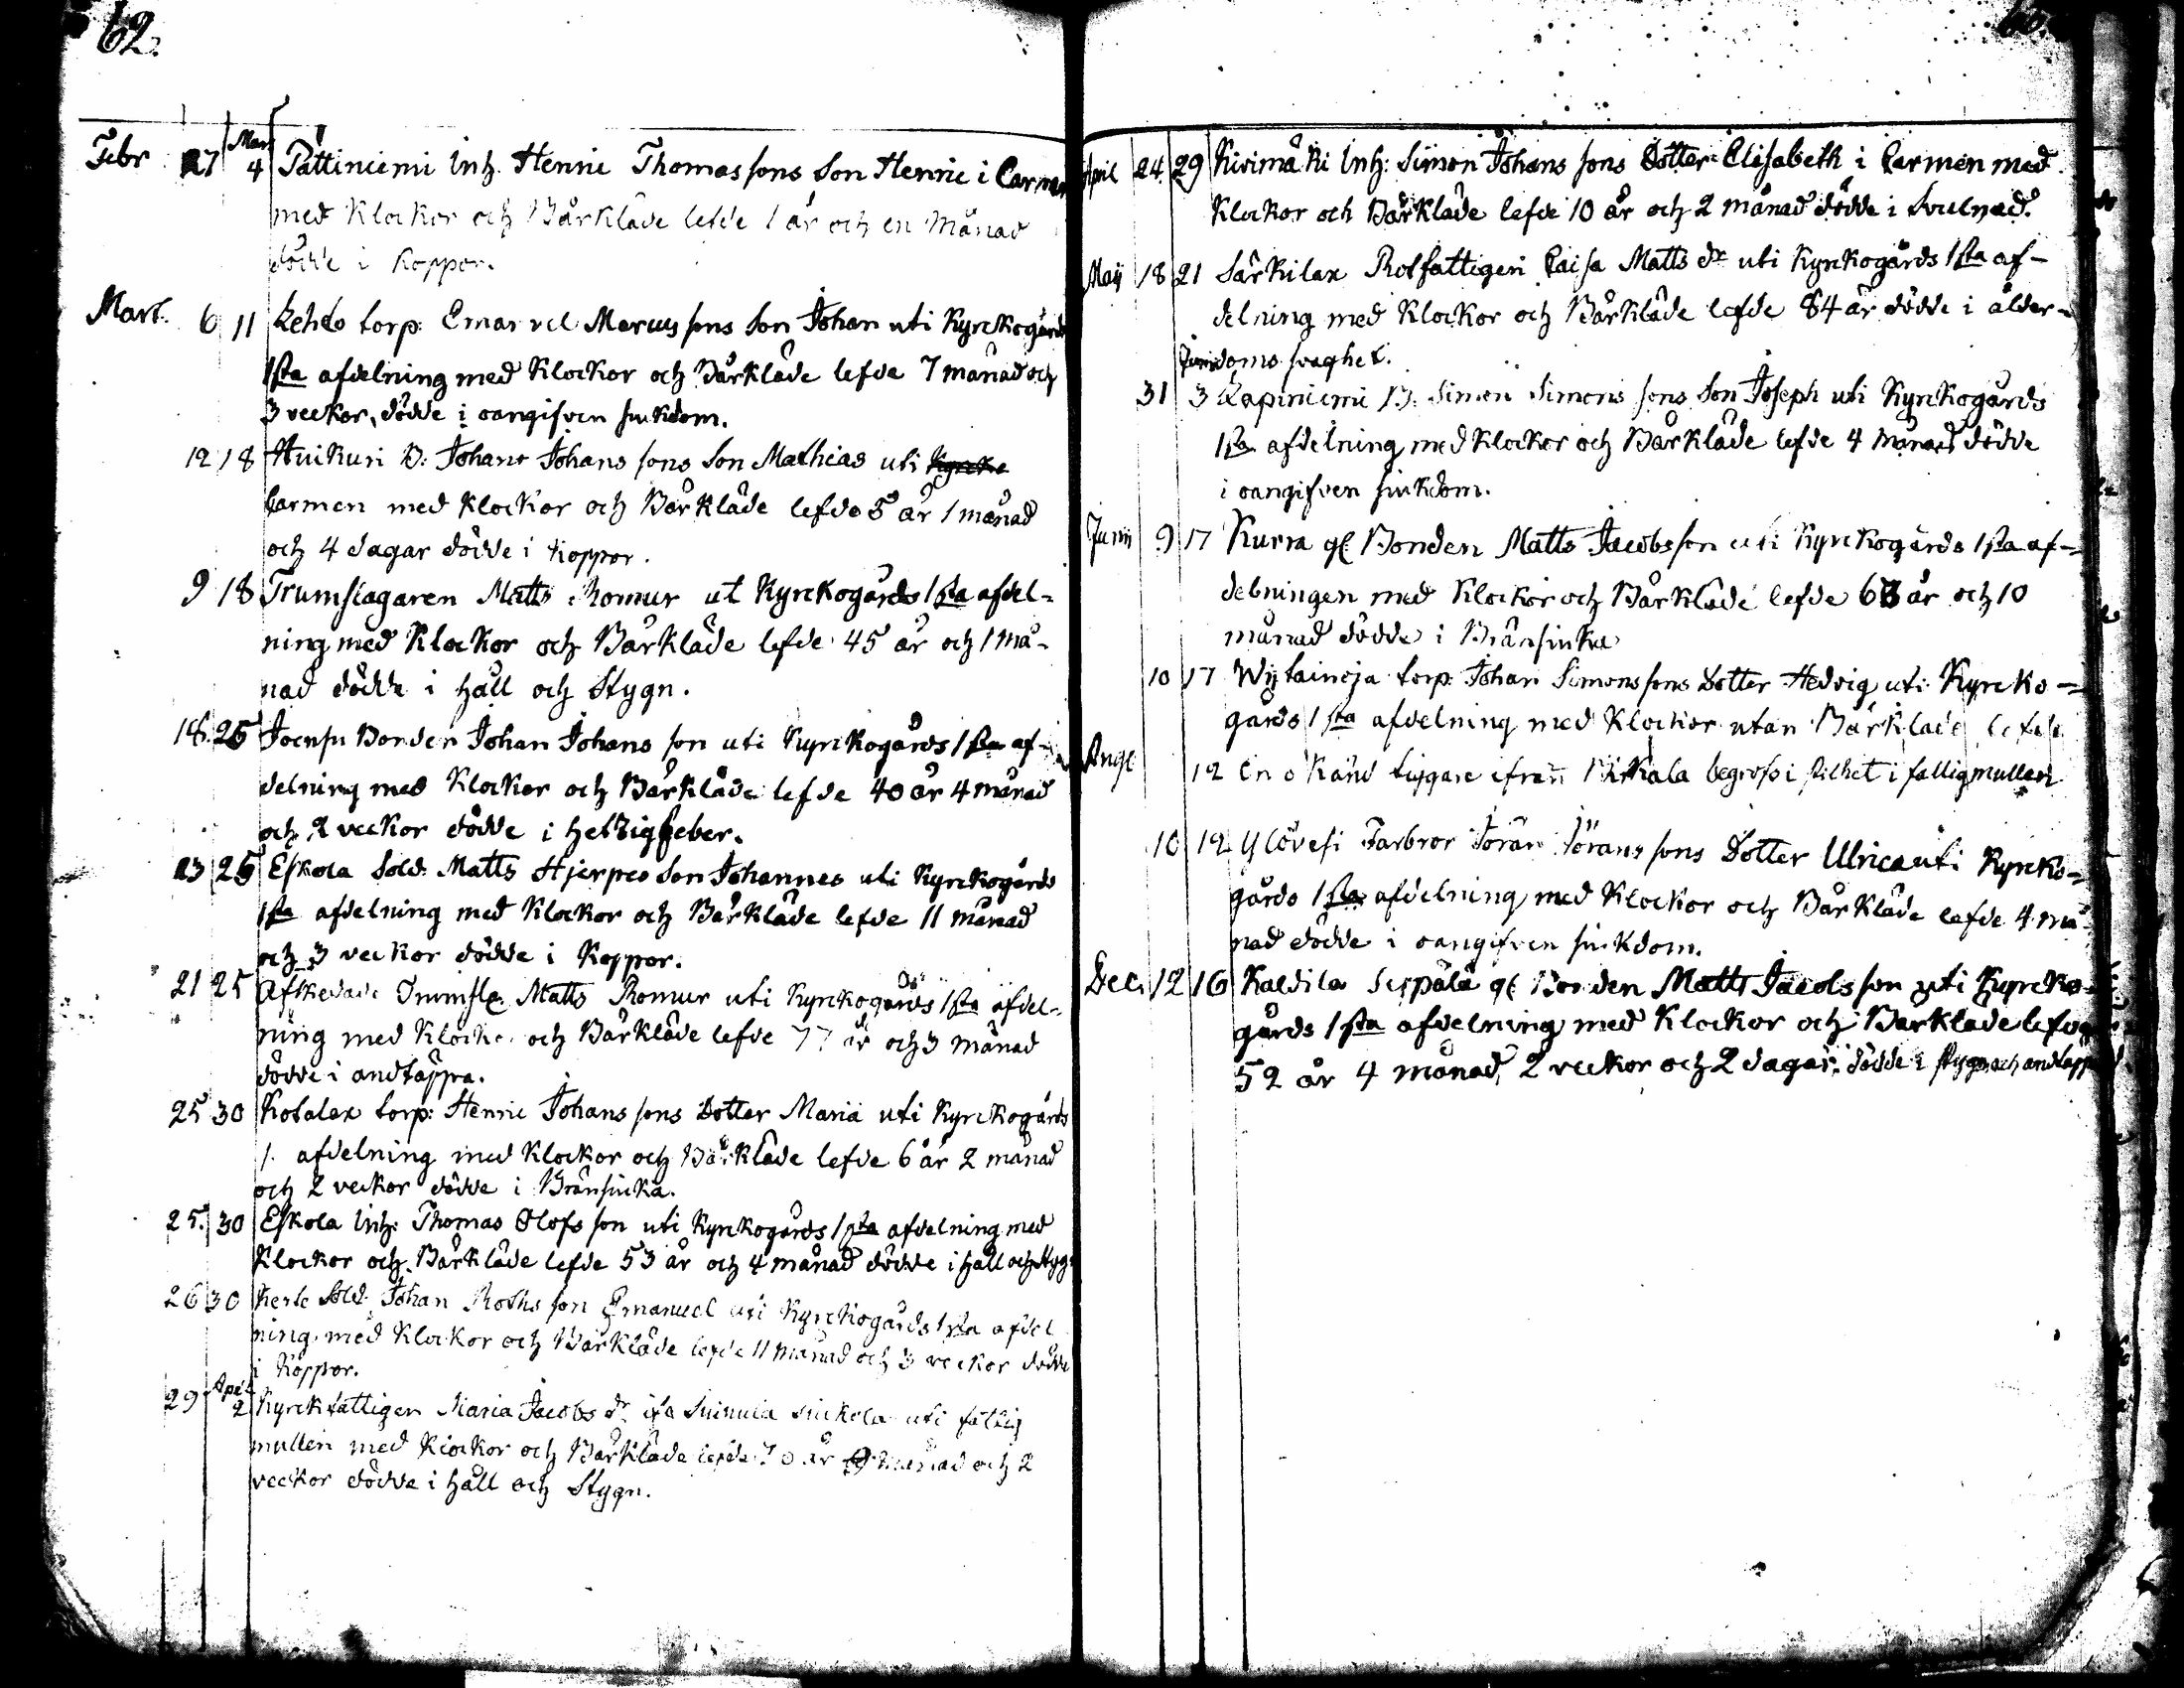 62.
Febr 27 Mar 4 Pättiniemi Inh. Henric Thomas sons Son Henric i Carmen
med Klockor och Bårkläde lefde 1 år och en Månad
dödde i Koppor.
Mart. 6 11 Lehto torp: Emanuel Marcus sons Son Johan uti Kyrckogårds
1sta afdelning med Klockor och Bårkläde lefde 7 månad och
3 veckor, dödde i oangifven siukdom.
12 18 Huikuri B: Johans Johans sons Son Mathias uti
Carmen med Klockor och Bårkläde lefde 5 år 1 månad
och 4 dagar dödde i Koppor.
9 18 Trumslagaren Matts Romur ut Kyrckogårds 1sta afdel-
ning med Klockor och Bårkläde lefde 45 år och 1 må-
nad dödde i håll och Stygn.
18. 25 Joensu Bonden Johan Johans son uti Kyrckogårds 1sta af-
delning med Klockor och Bårkläde lefde 40 år 4 månad
och 2 veckor dödde i hetzigfeber.
23 25 Eskola Sold. Matts Hjerpes Son Johannes uti Kyrckogårds
1sta afdelning med Klockor och Bårkläde lefde 11 månad
och 3 veckor dödde i Koppor.
21 25 Afskedade Trumsl. Matts Romur uti Kyrckogårds 1sta afdel-
ning med Klockor och Bårkläde lefde 77 år och 3 månad
dödde i andtäppa.
25 30 Kotalax torp: Henric Johans sons Dotter Maria uti Kyrckogårds
1. afdelning med Klockor och Bårkläde lefde 6 år 2 månad
och 2 veckor dödde i Bränsiuka.
25. 30 Eskola Inh: Thomas Olofs son uti Kyrckogårds 1sta afdelning med
Klockor och Bårkläde lefde 53 år och 4 månad dödde i håll och Stygn
26 30 Sold. Johan Roths son Emanuel uti Kyrckogårds 1sta afdel
ning med Klockor och Bårkläde lefde 11 månad och 3 veckor dödde
i Koppor.
29 Apr 2 Kyrckfattigen Maria Jacobs dr uti fattig
mullen med Klockor och Bårkläde lefde 70 år månad och 2
veckor dödde i håll och Stygn.
April 24 29 Kivimäki Inh: Simon Johans sons Dotter Elisabeth i Carmen med
Klockor och Bårkläde lefde 10 år och 2 månad dödde i Svulnad.
Maij 18 21 Särkilax Rotfattigen Caisa Matts dr uti Kyrckogårds 1sta af-
delning med Klockor och Bårkläde lefde 84 år dödde i ålder-
doms svaghet.
31 Junii 3 Lapiniemi B. Simon Simons sons Son Joseph uti Kyrckogårds
1sta afdelning med Klockor och Bårkläde lefde 4 månad dödde
i oangifven siukdom.
Junii 9 17 Kurra gl Bonden Matts Jacobsson uti Kyrckogårds 1sta af-
delningen med Klockor och Bårkläde lefde 63 år och 10
månad dödde i Bränsiuka
10 17 torp: Johan Simonssons Dotter Hedvig uti Kyrcko-
gårds 1sta afdelning med Klockor utan Bårkläde lefde
Aug: 12 En okänd tiggare ifrån Birkala begrofs i stilhet i fattigmullen
10 12 Ylövesi Farbror Jöran Jörans sons Dotter Ulrica uti Kyrcko-
gårds 1sta afdelning med Klockor och Bårkläde lefde 4 må-
nad dödde i oangifven siukdom.
Dec. 12 16 Kaldila Seppälä gl Bonden Matts Jacobs son uti Kyrcko-
gårds 1sta afdelning med Klockor och Bårkläde lefde
52 år 4 månad, 2 veckor och 2 dagar. dödde i stygn och andtäppa.